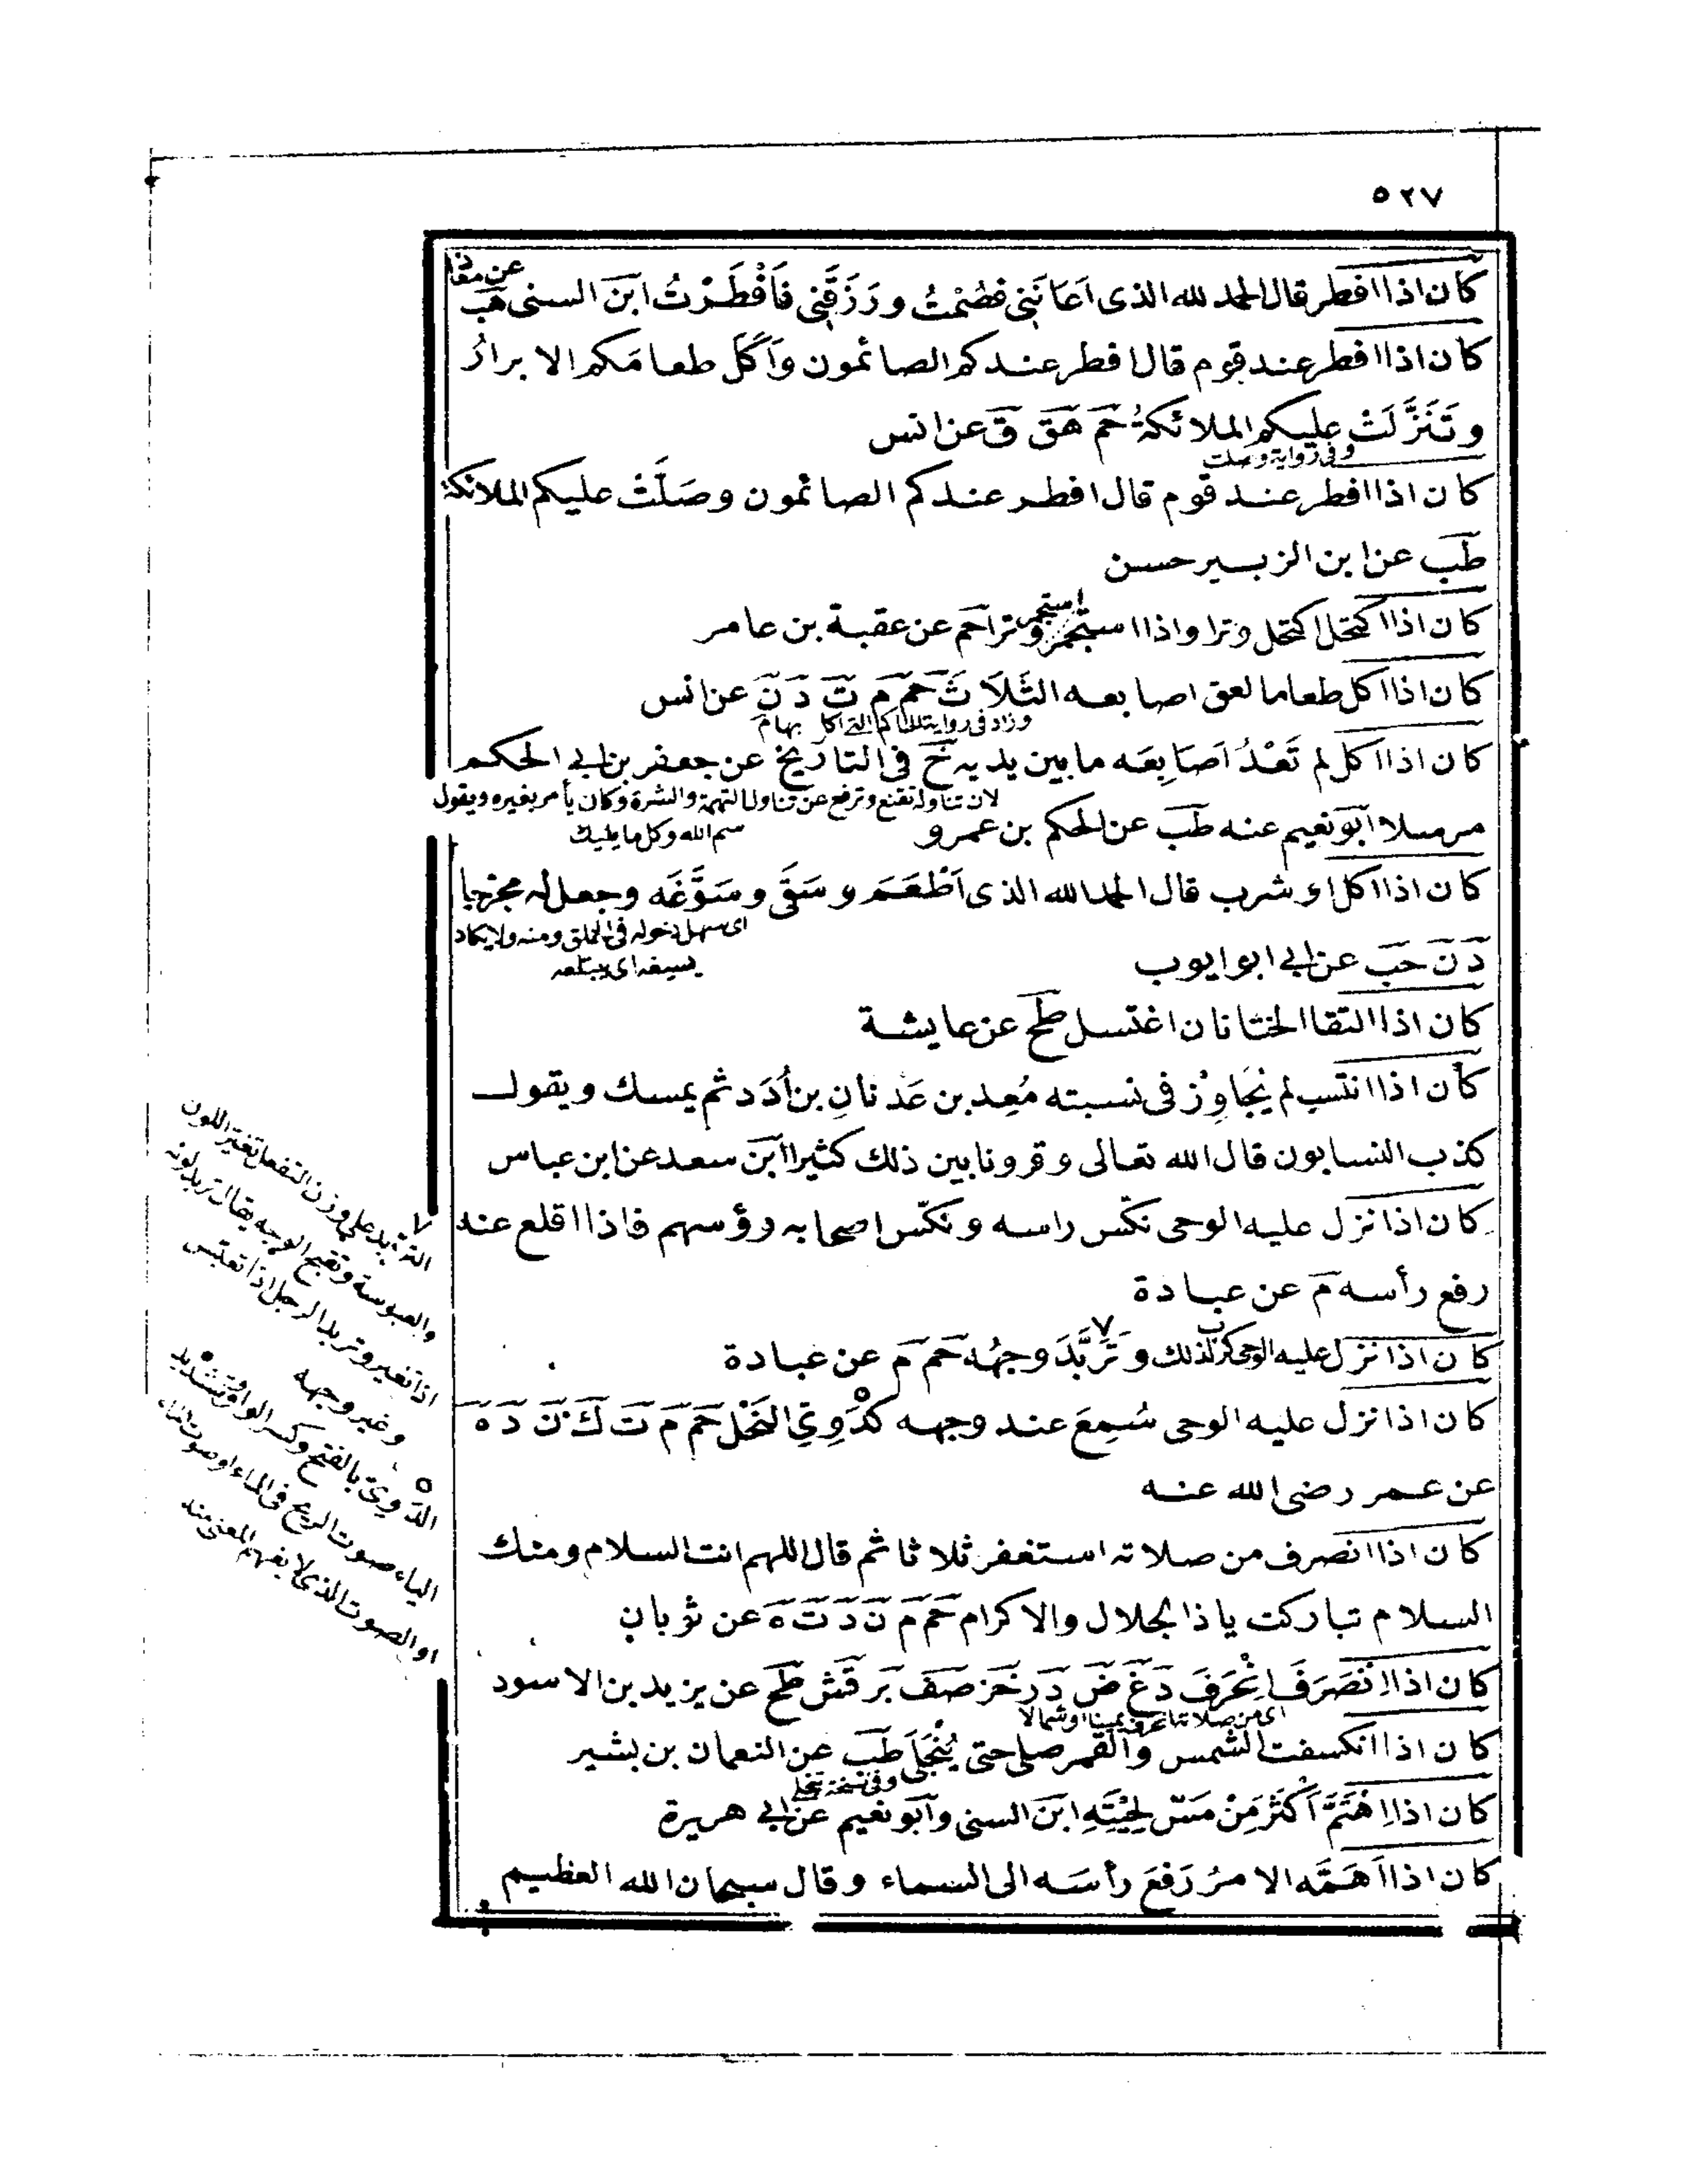 ٥٢٧
كان اذا افطر قال الحمد لله الذى اَعَانَنِى فَصُمْتُ ورَزَقَنِى فَاَفْطَرْتُ ابن السنى هب عن معاذ
كان اذا افطر عند قوم قال افطر عندكم الصائمون وَاَكَلَ طعامَكم الابرارُ
وتَنَزَّلَتْ عليكم الملائكةُ حم هق ق عن انس
وفى رواية وصلت
كان اذا افطر عند قوم قال افطر عندكم الصائمون وصَلَّتْ عليكم الملائكة
طب عن ابن الزبير حسن
كان اذا اكتحل اكتحل وترا واذا استجمر استجمر وترا حم عن عقبة بن عامر
كان اذا اكل طعاما لعق اصابعه الثَلَاثَ حم م ت د ن عن انس
وزاد فى رواية للحاكم التى اكل بها م
كان اذا اكل لم تَعْدُ اَصَابِعَه ما بين يديه خ فى التاريخ عن جعفر بن ابى الحكم
لان تناوله تقنع وترفع عن تناول النهمة والشره وكان يأمر بغيره ويقول
مرسلا ابو نعيم عنه طب عن الحكم بن عمرو
سم الله وكل مما يليك
كان اذا اكل او شرب قال الحمد لله الذى اَطْعَمَ وسَقَى وسَوَّغَه وجعل له مخرجا
اى سهل دخوله فى الحلق ومنه ولا يكاد
د ن حب عن ابى ايوب
يسيغه اى يبتلعه
كان اذا التقا الختانان اغتسل طح عن عايشة
كان اذا انتسب لم يُجَاوِزْ فى نسبته مُعِد بن عَدنانِ بن اُدَد ثم يمسك ويقول
كذب النسابون قال الله تعالى وقرونا بين ذلك كثيرا ابن سعد عن ابن عباس
كان اذا نزل عليه الوحى نكّس راسه ونكّس اصحابه رؤسهم فاذا اقلع عنه
رفع رأسه م عن عبادة
كان اذا نزل عليه الوحى كرب لذلك وتَرَبَّدَ وجهُه حم م عن عبادة
كان اذا نزل عليه الوحى سُمِعَ عند وجهه كدَوِيّ النَحْل حم م ت ك ن د ه
عن عمر رضى الله عنه
كان اذا انصرف من صلاته استغفر ثلاثا ثم قال اللهم انت السلام ومنك
السلام تباركت يا ذا الجلال والاكرام حم م ن د ت ه عن ثوبان
كان اذا اِنْصَرَفَ اِنْحَرَفَ د غ ض د ر خز صف بر قش طح عن يزيد بن الاسود
اى من صلاته انحرف يمينا او شمالا
كان اذا انكسفت الشمس والقمر صلى حتى يُنْجَلى طب عن النعمان بن بشير
وفى نسخة تنجلى
كان اذا اِهْتَمَّ اَكْثَرَ مِنْ مَسّ لِحْيَتِهِ ابن السنى وابو نعيم عن ابى هريرة
كان اذا اَهَمَّه الامرُ رَفَعَ رأسَه الى السماء وقال سبحان الله العظيم
٧
التربد على وزن التفعل تغير اللون
والعبوسة وتقبح الوجه يقال تربد لونه
اذا تغير وتربد الرجل اذا تعبس
وغير وجهه
٥
الدَوِىّ بالفتح وكسر الواو وتشديد
الياء صوت الريح فى الماء او صوت الماء
او الصوت الذى لا يفهم المعنى منه